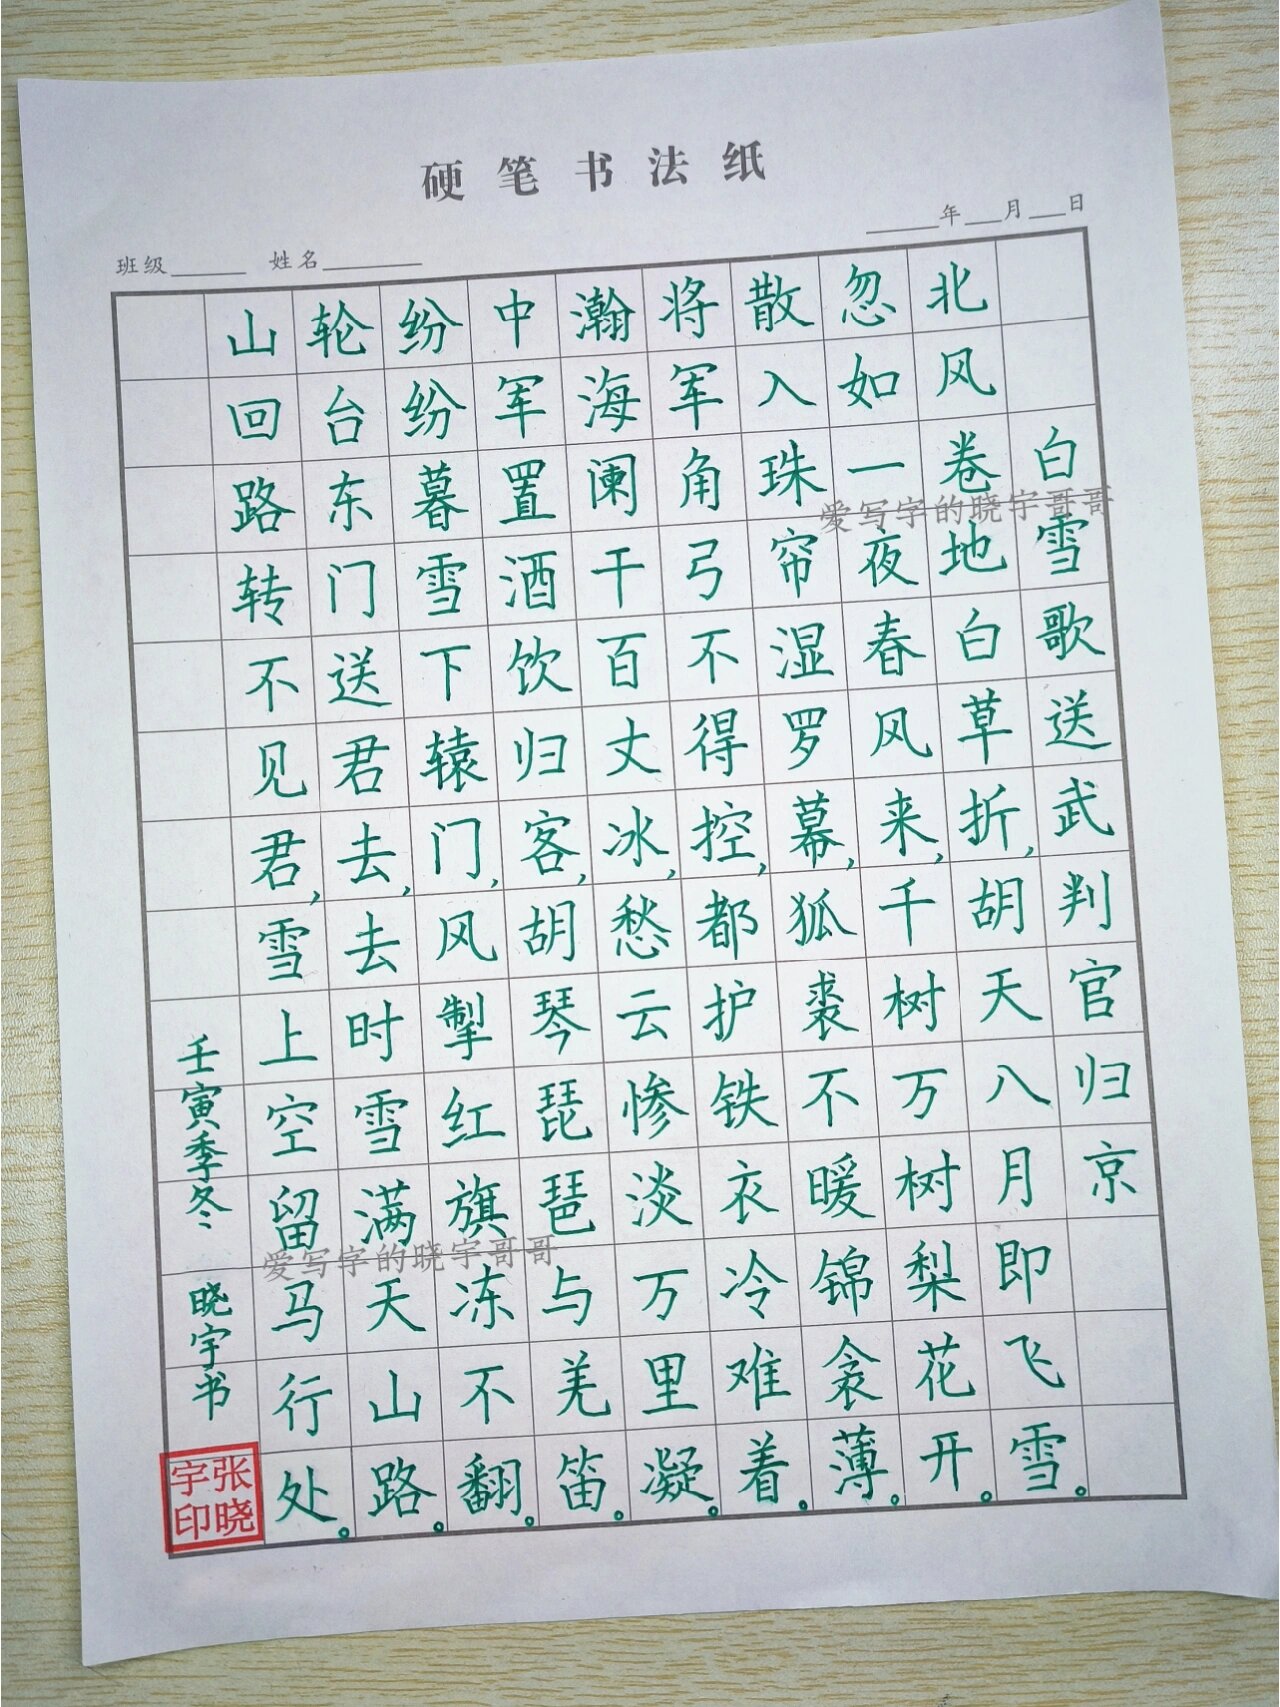 硬笔书法纸
年 月 日
班级 姓名
白雪歌送武判官归京
北风卷地白草折,胡天八月即飞雪。
忽如一夜春风来,千树万树梨花开。
散入珠帘湿罗幕,狐裘不暖锦衾薄。
将军角弓不得控,都护铁衣冷难着。
瀚海阑干百丈冰,愁云惨淡万里凝。
中军置酒饮归客,胡琴琵琶与羌笛。
纷纷暮雪下辕门,风掣红旗冻不翻。
轮台东门送君去,去时雪满天山路。
山回路转不见君,雪上空留马行处。
壬寅季冬 晓宇书
张晓宇印
爱写字的晓宇哥哥
爱写字的晓宇哥哥